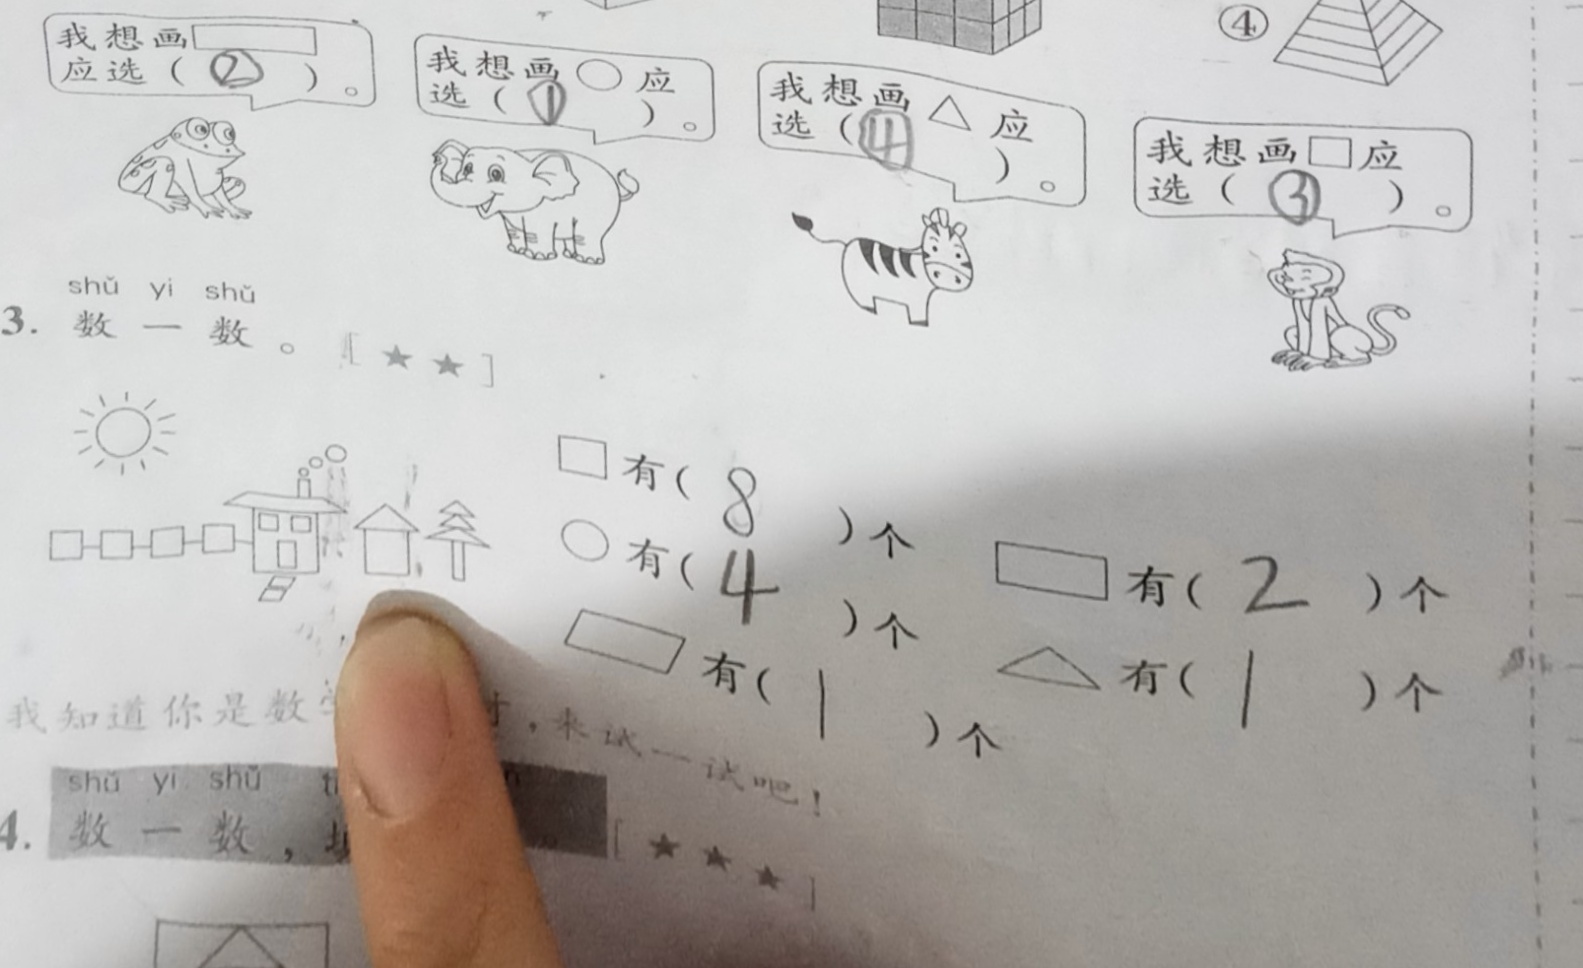 ④
我想画
应选（②）。
我想画 应
选（①）。
我想画 应
选（4）。
我想画 应
选（③）。
shǔ yi shǔ
3. 数一数。[★★]
有（8）个
有（4）个
有（1）个
有（2）个
有（1）个
我知道你是数 ，来试一试吧！
shǔ yi shǔ
4. 数一数， 。[★★★]